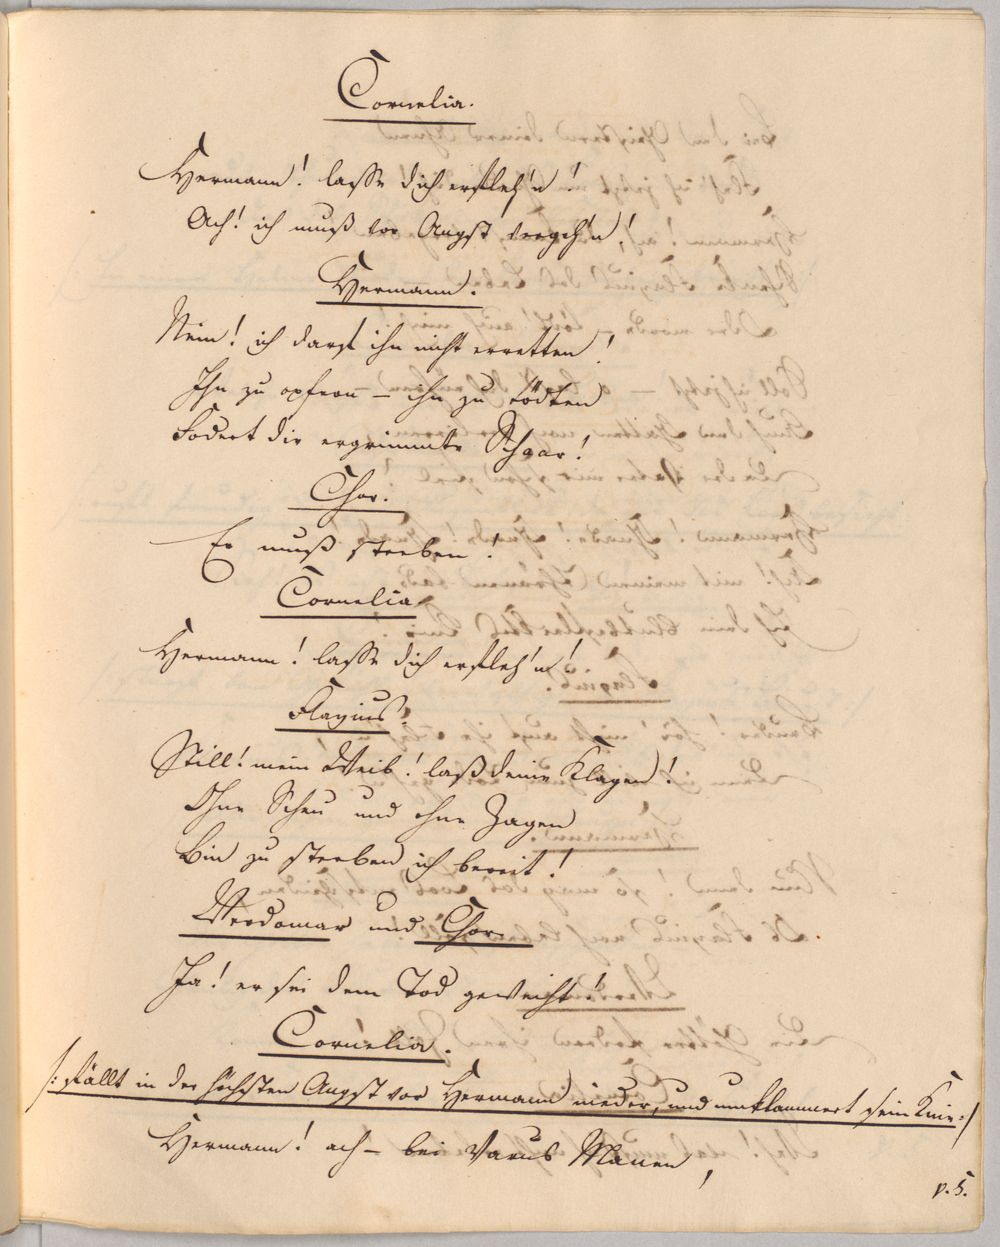 Cornelia.
Hermann! lasse dich erfleh'n!
Ach! ich muß vor Angst vergeh'n!
Hermann.
Nein! ich darf ihn nicht erretten!
Ihn zu opfern – ihn zu tödten
Fodert die ergrimmte Schaar!
Chor.
Er muß sterben!
Cornelia
Hermann! lasse dich erfleh'n!
Flavius.
Still! mein Weib! laß deine Klagen!
Ohne Scheu und ohne Zagen
Bin zu sterben ich bereit!
Werdomar und Chor
Ja! er sei dem Tod geweiht!
Cornelia.
/: fällt in der höchsten Angst vor Hermann nieder, und umklammert sein Knie :/
Hermann! ach – bei Varus Manen,
v. S.